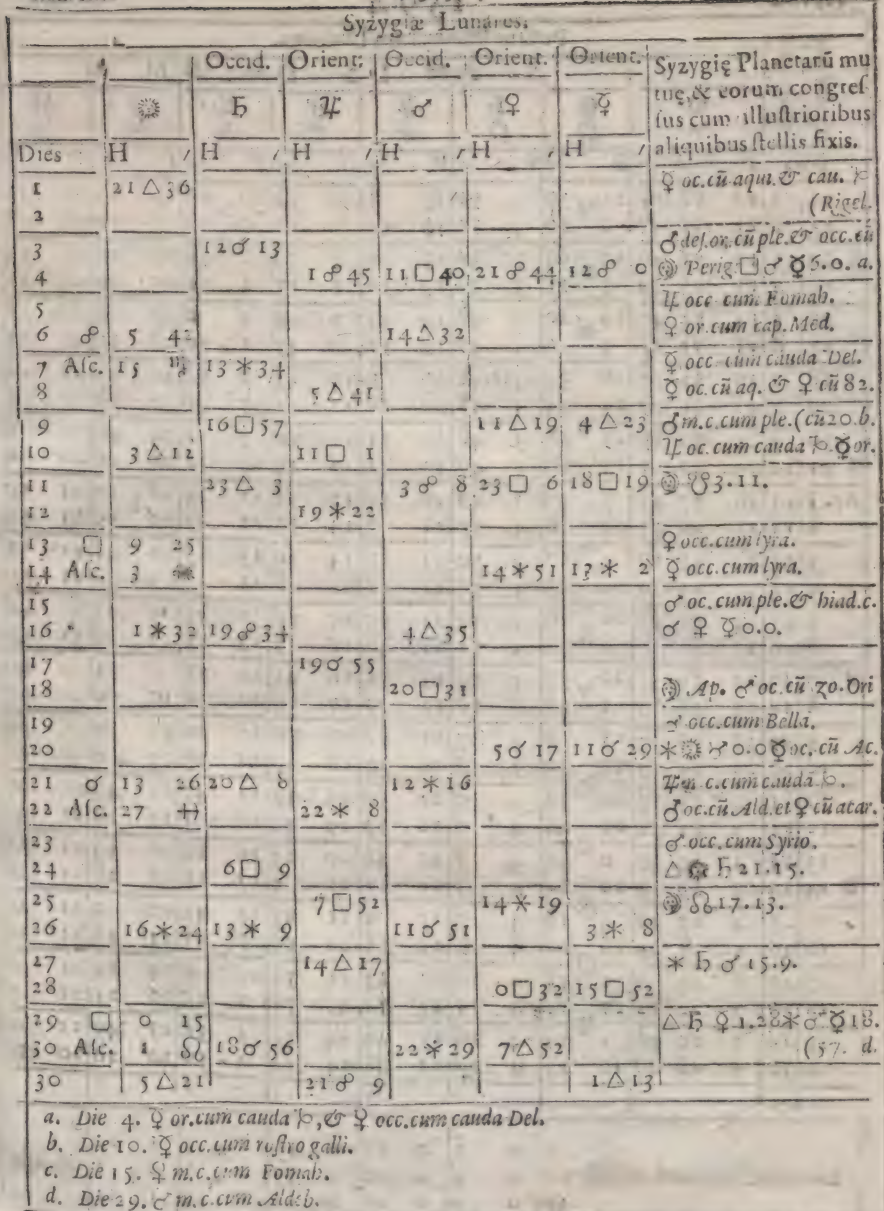 Syzygiæ Lunares.
Occid. Orient: Occid. Orient. Orient. Syzygię Planetarū mu
☉ ♄ ♃ ♂ ♀ ☿ tuę, & eorum congreſ
ſus cum illuſtrioribus
Dies H ′ H ′ H ′ H ′ H ′ H ′ aliquibus ſtellis fixis.
1 21 △ 36 ☿ oc. cū aqui. & cau. ♑
2 (Rigel.
3 12 ☌ 13 ♂ deſ. or. cū ple. & occ. cū
4 1 ☍ 45 11 □ 40 21 ☍ 44 12 ☍ 0 ☽ Perig. □ ♂ ☿ 6. 0. a.
5 ♃ occ cum Fomah.
6 ☍ 5 42 14 △ 32 ♀ or. cum cap. Med.
7 Aſc. 15 ♍ 13 ⚹ 34 ☿ occ. cum cauda Del.
8 5 △ 41 ☿ oc. cū aq. & ♀ cū 82.
9 16 □ 57 11 △ 19 4 △ 23 ♂ m. c. cum ple. (cū 20. b.
10 3 △ 12 11 □ 1 ♃ oc. cum cauda ♑. ☿ or.
11 23 △ 3 3 ☍ 8 23 □ 6 18 □ 19 ☽ ☋ 3. 11.
12 19 ⚹ 22
13 □ 9 25 ♀ occ. cum lyra.
14 Aſc. 3 ♒ 14 ⚹ 51 13 ⚹ 2 ☿ occ. cum lyra.
15 ♂ oc. cum ple. & hiad. c.
16 1 ⚹ 32 19 ☍ 34 4 △ 35 ☌ ♀ ☿ 0. 0.
17 19 ☌ 55
18 20 □ 31 ☽ Ap. ♂ oc. cū zo. Ori
19 ♂ occ. cum Bella.
20 5 ☌ 17 11 ☌ 29 ⚹ ☉ ♂ 0. 0 ☿ oc. cū Ac.
21 ☌ 13 26 20 △ 8 12 ⚹ 16 ♃ m. c. cum cauda ♑.
22 Aſc. 27 ♐ 22 ⚹ 8 ♂ oc. cū Ald. et ♀ cū atar.
23 ♂ occ. cum Syrio.
24 6 □ 9 △ ☉ ♄ 21. 15.
25 7 □ 52 14 ⚹ 19 ☽ ☊ 17. 13.
26 16 ⚹ 24 13 ⚹ 9 11 ☌ 51 3 ⚹ 8
27 14 △ 17 ⚹ ♄ ♂ 15. 9.
28 0 □ 32 15 □ 52
29 □ 0 15 △ ♄ ♀ 1. 28 ⚹ ♂ ☿ 18.
30 Aſc. 1 ♌ 18 ☌ 56 22 ⚹ 29 7 △ 52 (57. d.
30 5 △ 21 21 ☍ 9 1 △ 13
a. Die 4. ☿ or. cum cauda ♑, & ♀ occ. cum cauda Del.
b. Die 10. ☿ occ. cum roſtro galli.
c. Die 15. ♀ m. c. cum Fomah.
d. Die 29. ♂ m. c. cum Aldeb.